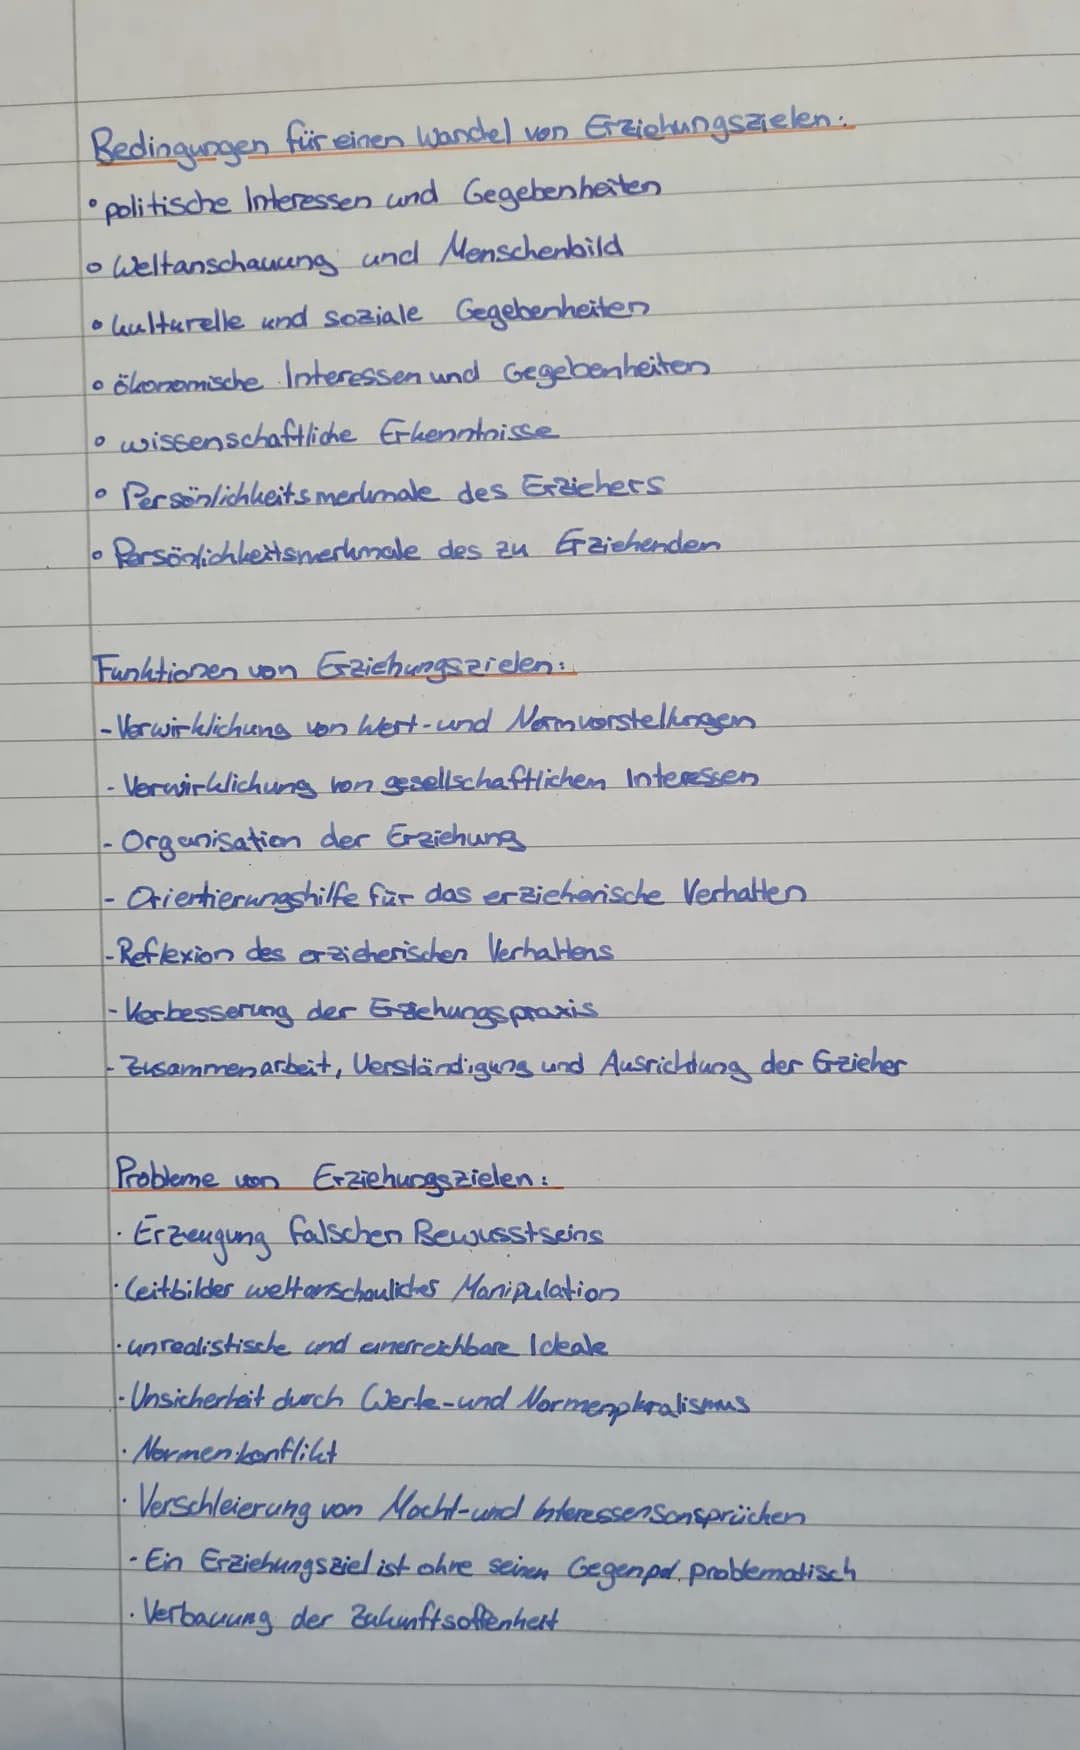 Bedingungen für einen Wandel von Erziehungszielen:
° politische Interessen und Gegebenheiten
° Weltanschauung und Menschenbild
° kulturelle und soziale Gegebenheiten
° ökonomische Interessen und Gegebenheiten
° wissenschaftliche Erkenntnisse
° Persönlichkeitsmerkmale des Erziehers
° Persönlichkeitsmerkmale des zu Erziehenden
Funktionen von Erziehungszielen:
- Verwirklichung von Wert- und Normvorstellungen
- Verwirklichung von gesellschaftlichen Interessen
- Organisation der Erziehung
- Orientierungshilfe für das erzieherische Verhalten
- Reflexion des erzieherischen Verhaltens
- Verbesserung der Erziehungspraxis
- Zusammenarbeit, Verständigung und Ausrichtung der Erzieher
Probleme von Erziehungszielen:
· Erzeugung falschen Bewusstseins
· Leitbilder weltanschaulicher Manipulation
· unrealistische und unerreichbare Ideale
· Unsicherheit durch Werte- und Normenpluralismus
· Normenkonflikt
· Verschleierung von Macht- und Interessensansprüchen
· Ein Erziehungsziel ist ohne seinen Gegenpol problematisch
· Verbauung der Zukunftsoffenheit